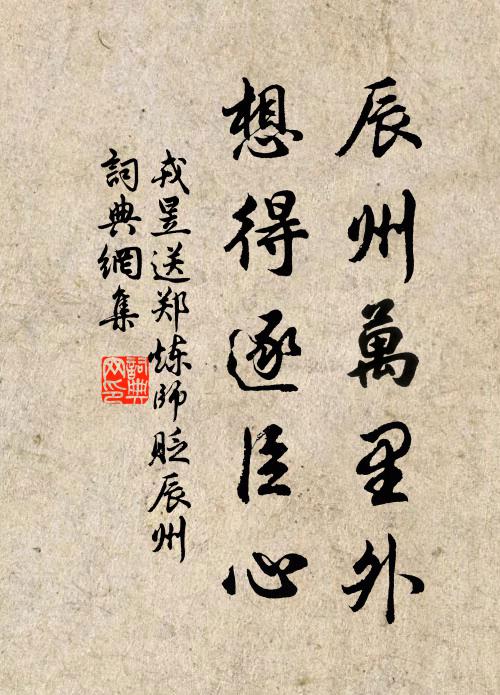 辰州萬里外
想得逐臣心
戎昱送郑炼师贬辰州
詞典網集
詞典网印